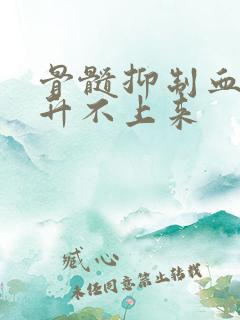 骨髓抑制血
升不上来
臧心
未经同意禁止转载